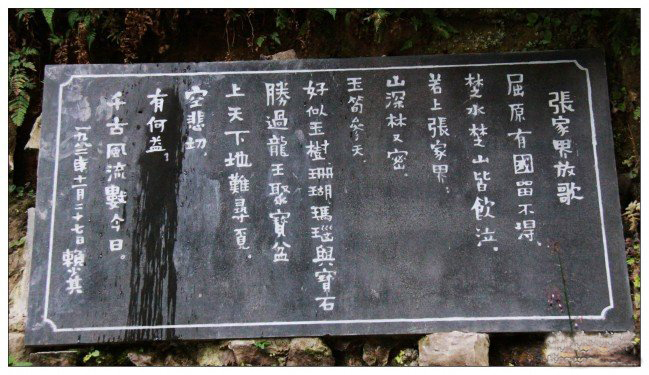 張家界放歌
屈原有國留不得、
楚水楚山皆飲泣。
若上張家界、
山深林又密.
玉筍參天.
好似玉樹珊瑚瑪瑙與寶石
勝過龍王聚寶盆
上天下地難尋覓。
空悲切、
有何益,
千古風流數今日。
一九八三年十一月二十七日 賴少其